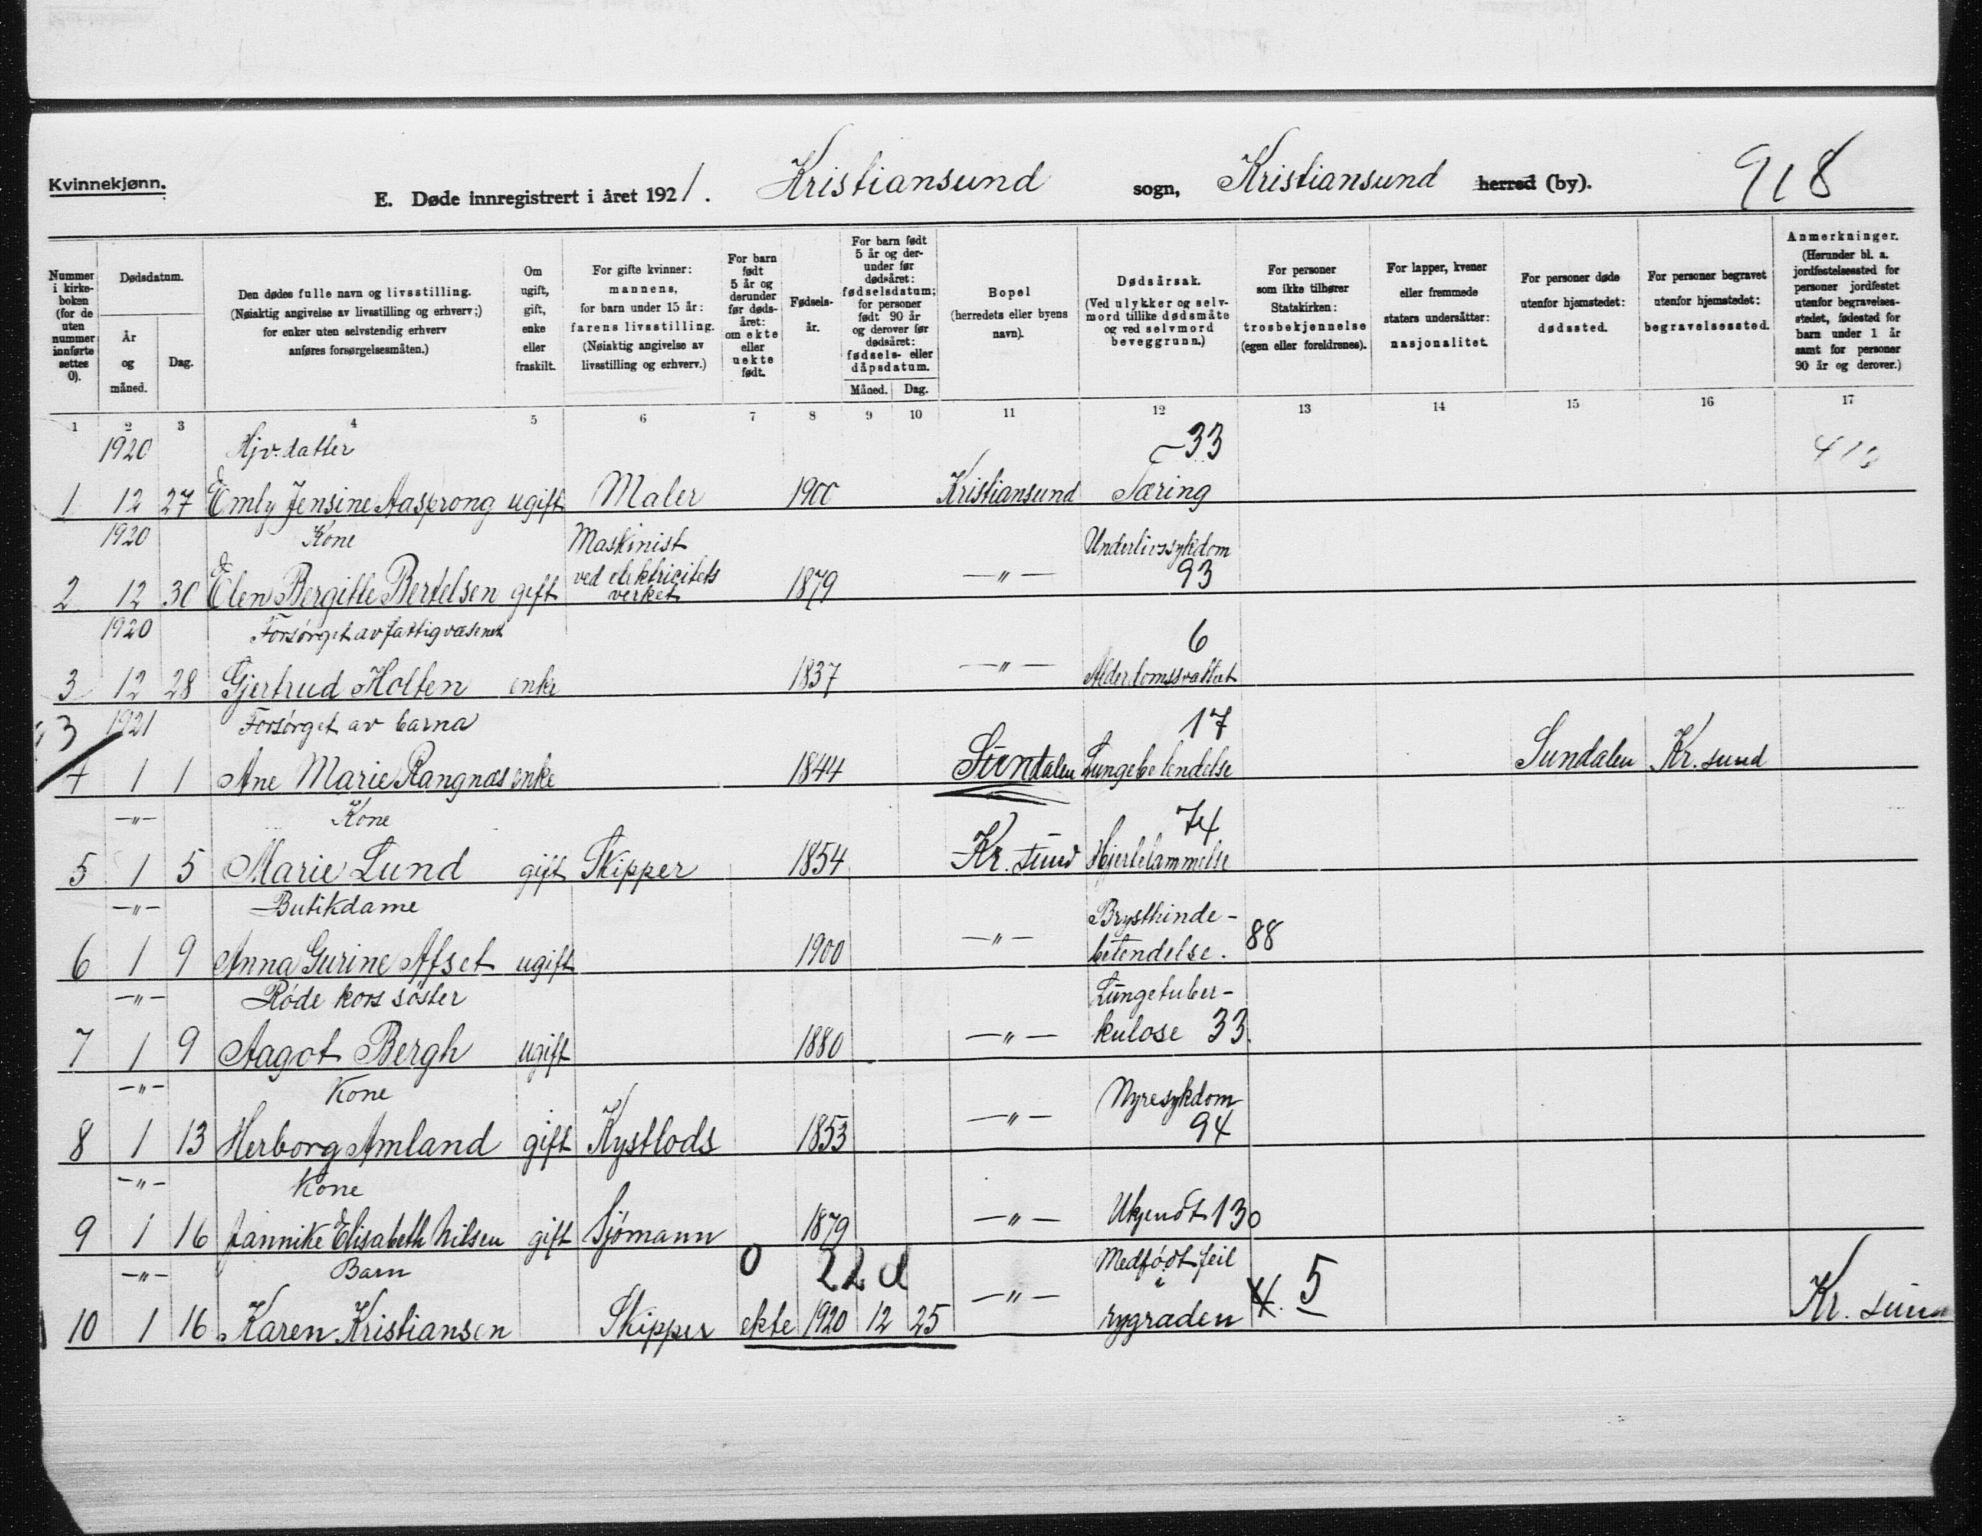 Kvinnekjønn.
E. Døde innregistrert i året 1921. Kristiansund sogn, Kristiansund herred (by). 918
Nummer i kirke-boken (for de uten nummer innførte settes 0).
Dødsdatum.
År og måned.
Dag.
Den dødes fulle navn og livsstilling. (Nøiaktig angivelse av livsstilling og erhverv;) for enker uten selvstendig erhverv anføres forsørgelsesmåten.)
Om ugift, gift, enke eller fraskilt.
For gifte kvinner: mannens, for barn under 15 år: farens livsstilling. (Nøiaktig angivelse av livsstilling og erhverv.)
For barn født 5 år og derunder før døds-året: om ekte eller uekte født.
Fødsels-år.
For barn født 5 år og der-under før dødsåret: fødselsdatum; for personer født 90 år og derover før dødsåret: fødsels- eller dåpsdatum.
Måned. Dag.
Bopel (herredets eller byens navn).
Dødsårsak. (Ved ulykker og selv-mord tillike dødsmåte og ved selvmord beveggrunn.)
For personer som ikke tilhører Statskirken: trosbekjennelse (egen eller foreldrenes).
For lapper, kvener eller fremmede staters undersåtter: nasjonalitet.
For personer døde utenfor hjemstedet: dødssted.
For personer begravet utenfor hjemstedet: begravelsessted.
Anmerkninger. (Herunder bl. a. jordfestelsessted for personer jordfestet utenfor begravelses-stedet, fødested for barn under 1 år samt for personer 90 år og derover.)
1 2 3 4 5 6 7 8 9 10 11 12 13 14 15 16 17
1920 Hjv. datter 33
1 12 27 Emly Jensine Aasprong ugift Maler 1900 Kristiansund Tæring
1920 Kone Maskinist Underlivssykdom
ved elektricitets
2 12 30 Elen Bergitte Bertelsen gift verket 1879 —"— 93
1920 Forsørget av fattigvæsenet 6
3 12 28 Gjertrud Holten enke 1837 —"— Alderdomssvakhet
3 1921 Forsørget av barna 17
4 1 1 Ane Marie Rangnæs enke 1844 Sundalen Lungebetendelse Sundalen Kr. sund
—"— Kone 74
5 1 5 Marie Lund gift Skipper 1854 Kr. sund Hjertelammelse
—"— Butikdame Brysthinde-
6 1 9 Anna Gurine Afset ugift 1900 —"— betendelse. 88
—"— Røde kors søster Lungetuber-
7 1 9 Aagot Bergh ugift 1880 —"— kulose 33.
—"— Kone Nyresykdom
8 1 13 Herborg Amland gift Kystlods 1853 —"— 94
—"— Kone
9 1 16 Jannike Elisabeth Nilsen gift Sjømann 1879 —"— Ukjendt 130
—"— Barn 0 22 d Medfødt feil
i
10 1 16 Karen Kristiansen Skipper ekte 1920 12 25 —"— rygraden 4. 5 Kr. sund